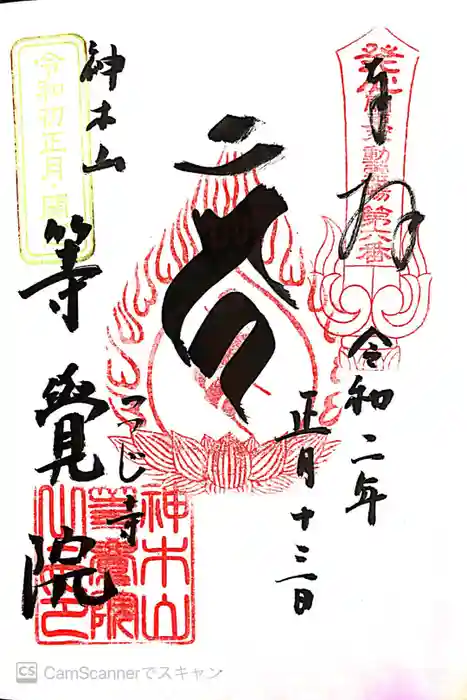 奉拝
令和二年
正月十三日
つつじ寺
神木山
等覺院
令和初正月
神木山
等覺院
CamScannerでスキャン